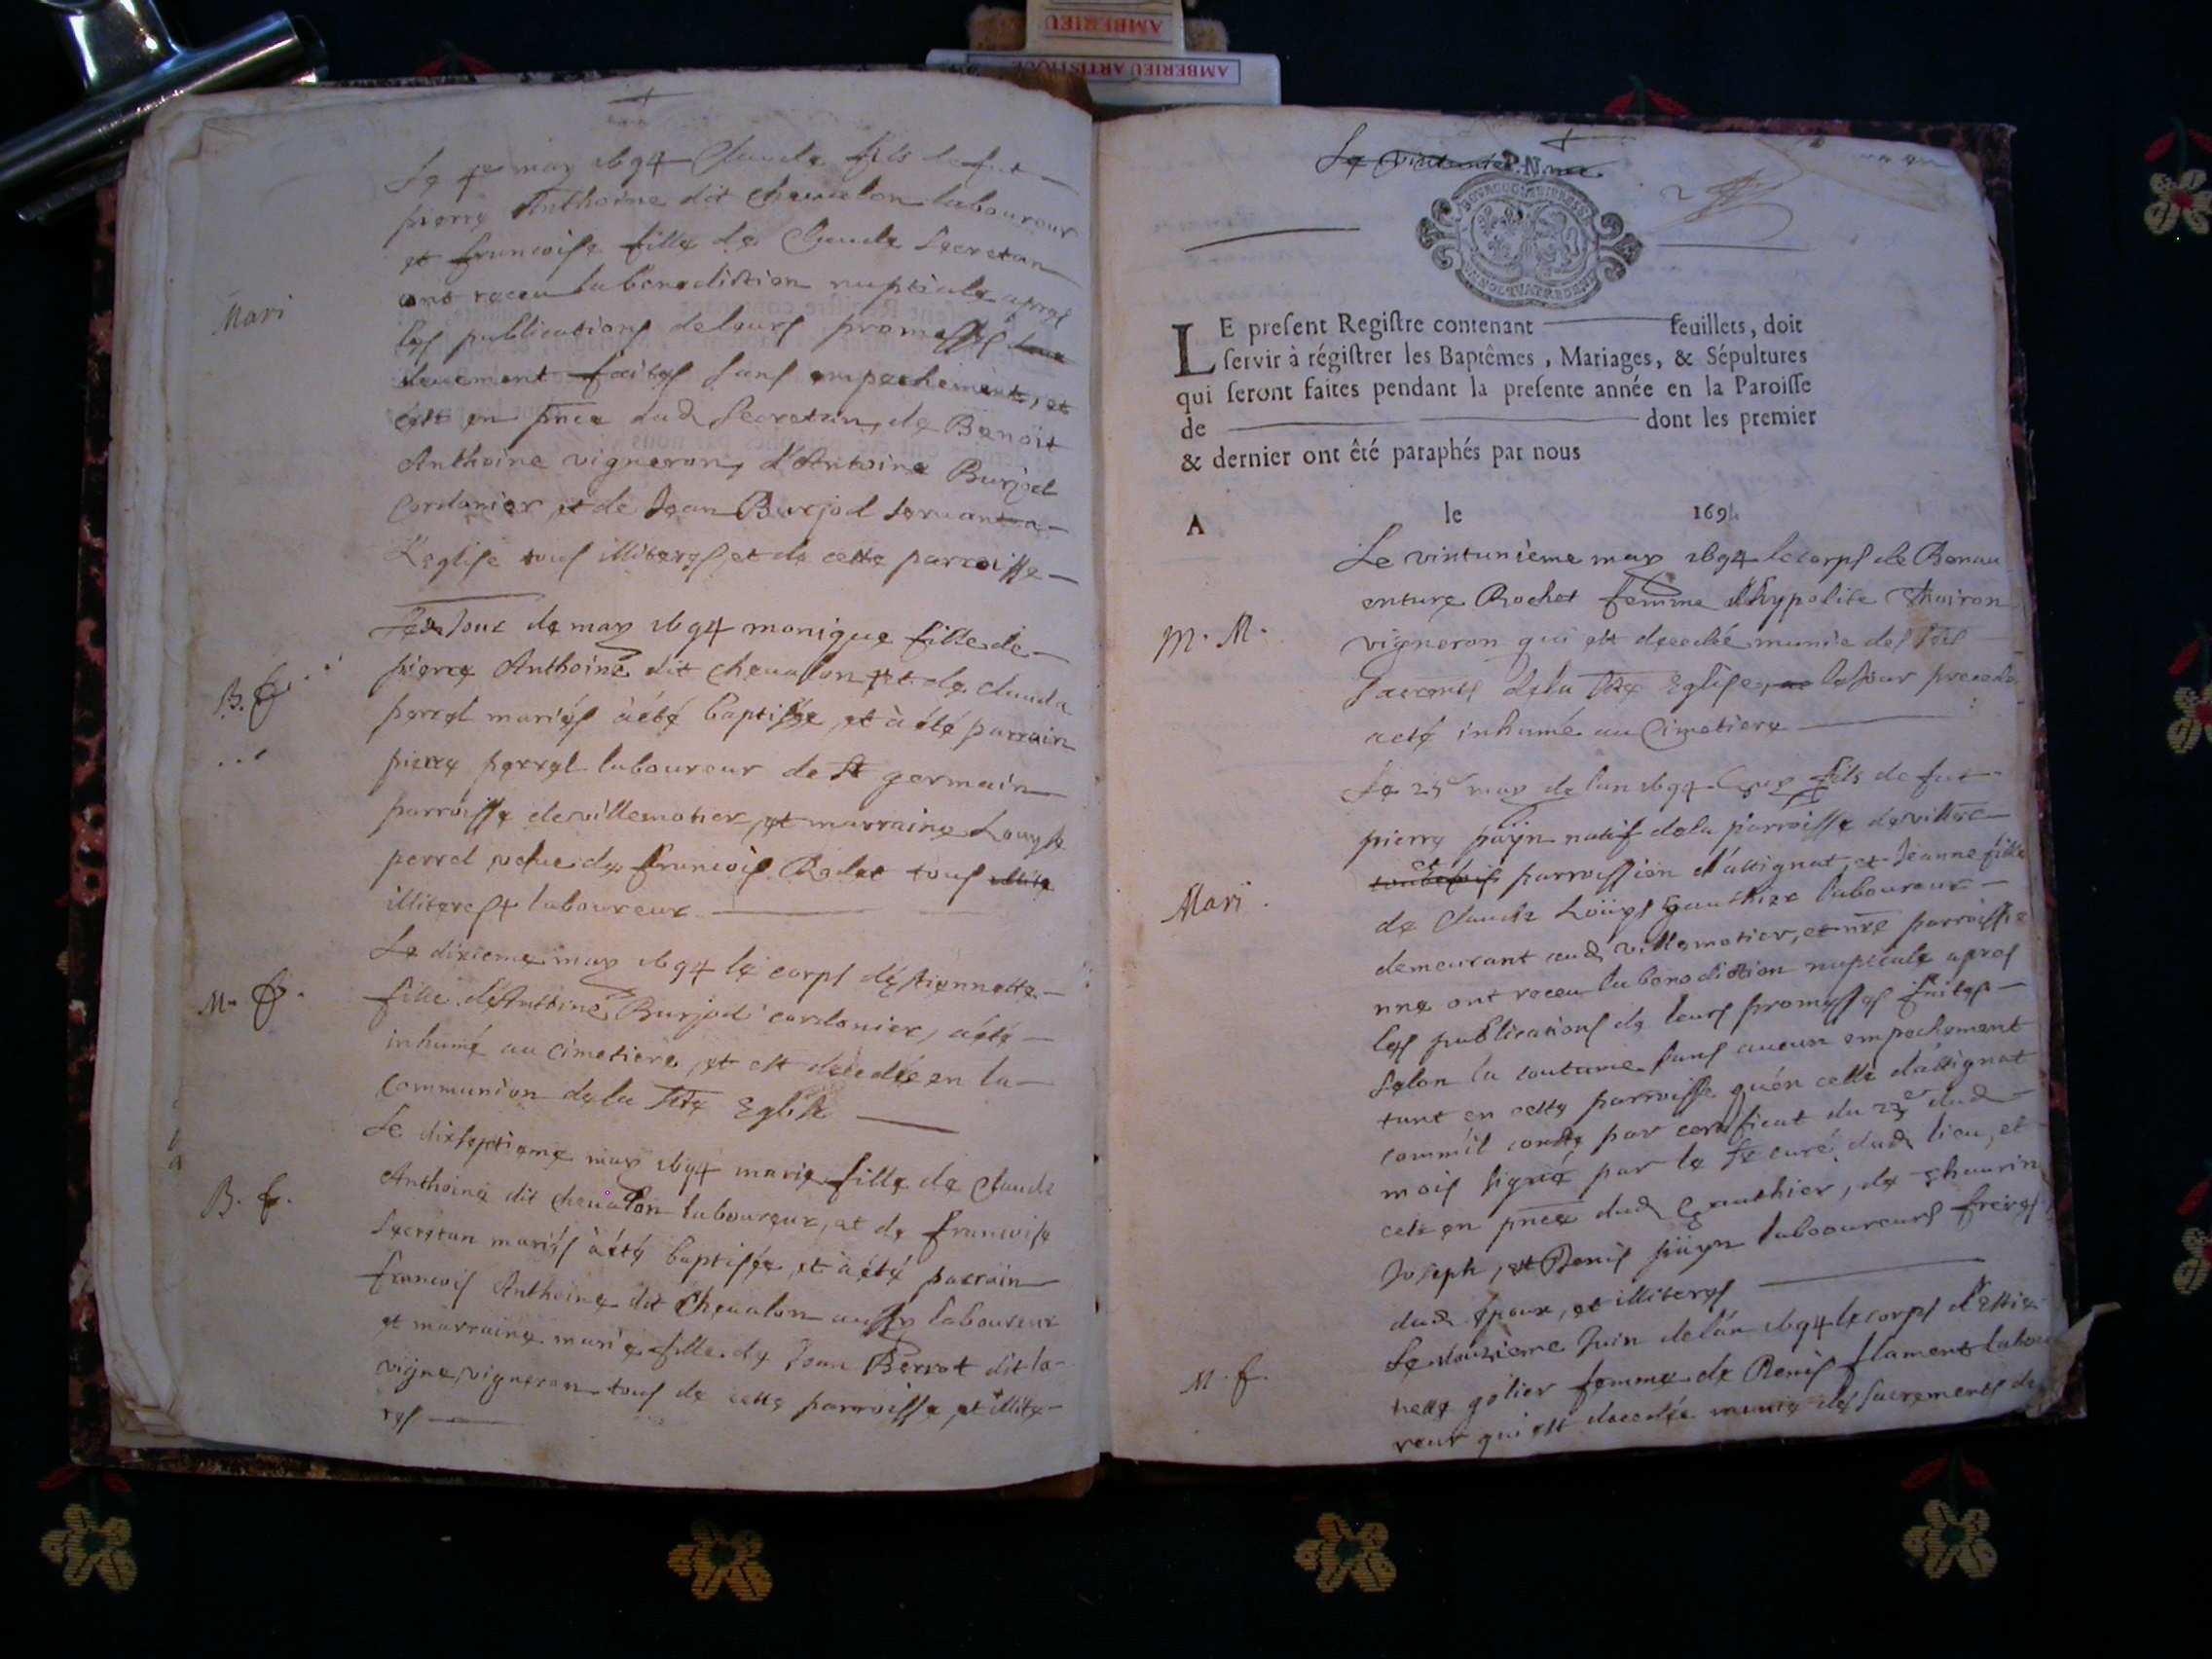 AMBERIEU
AMBERIEU ARTISTIQUE
Le 4e may 1694 Claude fils de fut
pierre Anthoine dit chevalon laboureur
et francoise fille de Claude Secretan
ont receu la benediction nuptiale apres
Mari
les publications de leurs promesses
deuement faites sans empechement, et
cest en pnce dud Secretan, de Benoit
Anthoine vigneron, d'Antoine Burjod
Cordonier, et de Jean Burjod servant a
L'eglise tous illiteres, et de cette parroisse
Jour de may 1694 monique fille de
B. f.
pierre Anthoine dit chevalon et de clauda
perrel mariés à été baptisée, et à été parrain
pierre perrel laboureur de St germain
parroisse de villemotier, et marraine Louyse
perrel vefue de francois Rolet tous
illiteres & laboureur
Le dixieme may 1694 le corps d'estiennette
M. f.
fille d'Anthoine Burjod cordonier, a été
inhumé au cimetiere, et est decedée en la
Communion de la Ste Eglise
Le dixseptieme may 1694 marie fille de Claude
B. f.
Anthoine dit chevalon laboureur, et de francoise
Secretan mariés à été baptisée, et à été parrain
francois Anthoine dit Chevalon aussy laboureur
et marraine marie fille de Jean Berrot dit la
vigne, vigneron tous de cette parroisse, et illite-
res
Le vintunie P.N.
LE present Registre contenant feuillets, doit
servir à régistrer les Baptêmes, Mariages, & Sépultures
qui seront faites pendant la presente année en la Paroisse
de dont les premier
& dernier ont êté paraphés par nous
A le 1694
Le vintunieme may 1694 le corps de Bonau
enture Rochet femme d'hypolite Thoiron
M. M.
vigneron qui est decedée munie des
Sacrents de la Ste Eglise, le Jour precede
a eté inhumé au Cimetiere
Le 25e may de lan 1694 fils de fut
pierre püyn natif de la parroisse de villre
et parroissien d'attignat, et Jeanne fille
Mari
de Claude Loüys gauthier laboureur
demeurant aud villemotier, et nre parroissie
nne ont receu la benediction nuptiale apres
les publications de leurs promesses faites
selon la coutume sans aucun empechement
tant en cette parroisse qu'en celle d'attignat
comm'il conste par certificat du 23e dud
mois signé par le Sr curé dud lieu, et
cest en pnce dud Gauthier, de thaurin
Joseph, et Denis püyn laboureurs freres
dud Epoux, et illiteres
Le douzieme Juin de lan 1694 le corps d'Estie
M. f.
nette golier femme de Denis flament labou
reur qui est decedée munie des Sacrements de